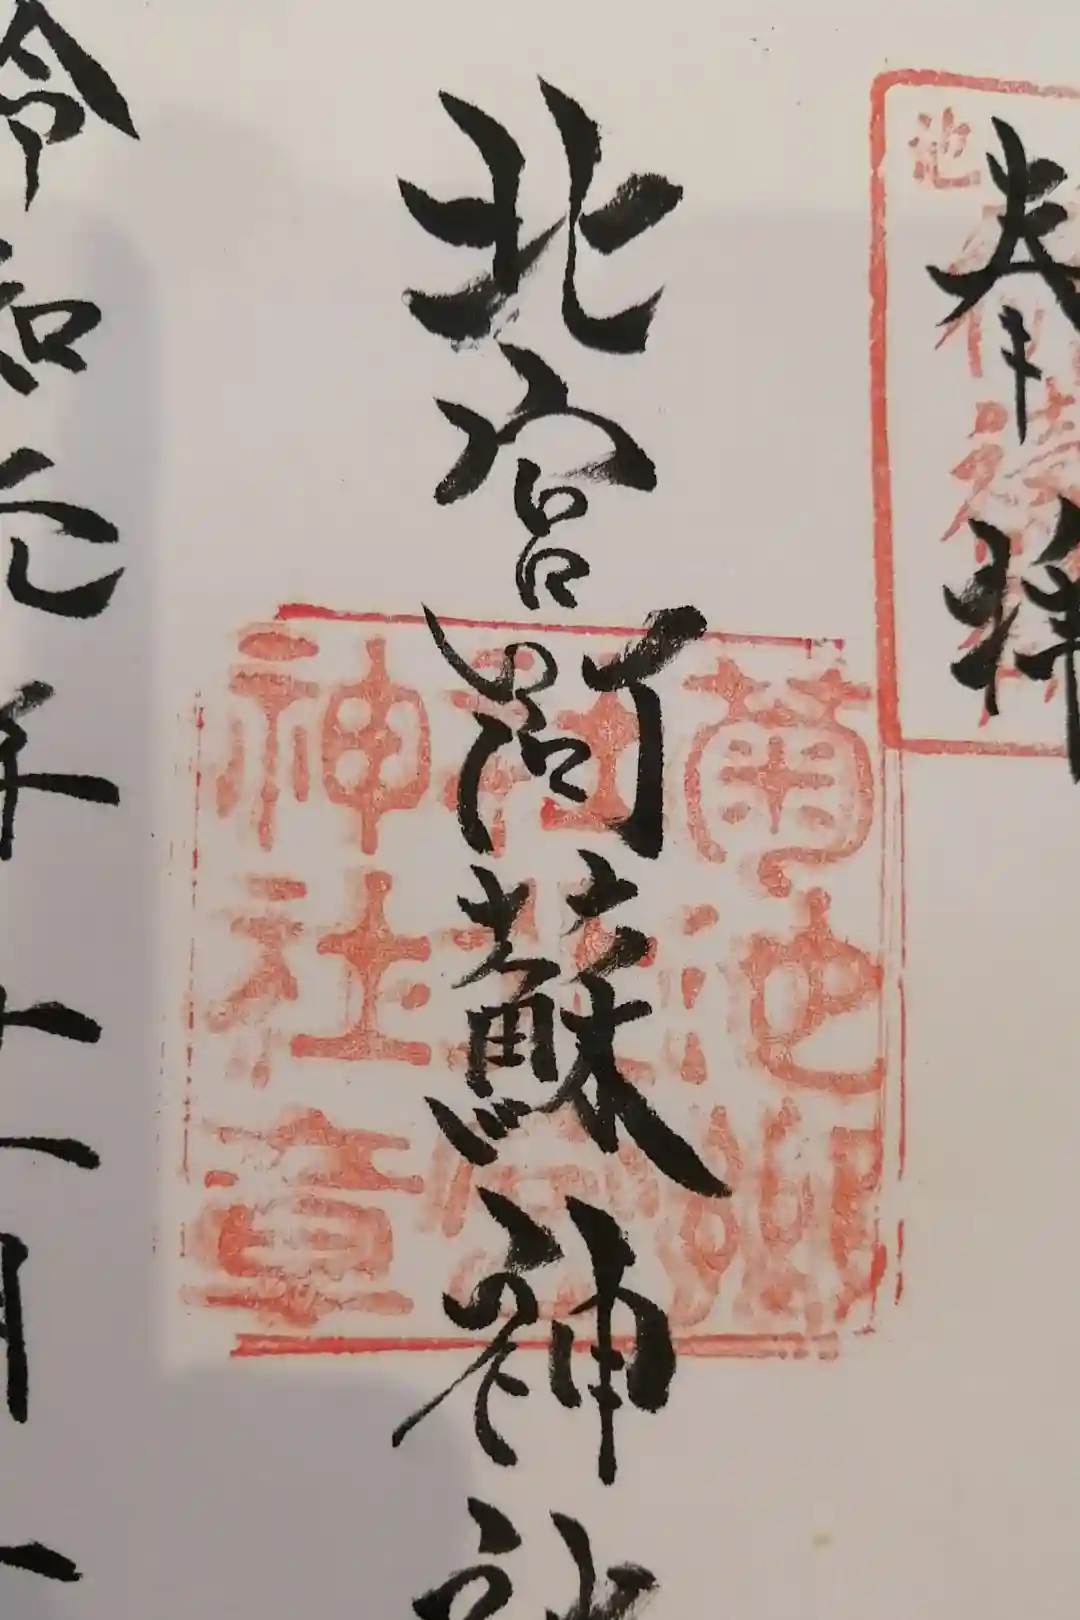 奉拝
池
北宮阿蘇神社
菊池郷
神社章
令和元年十一月一